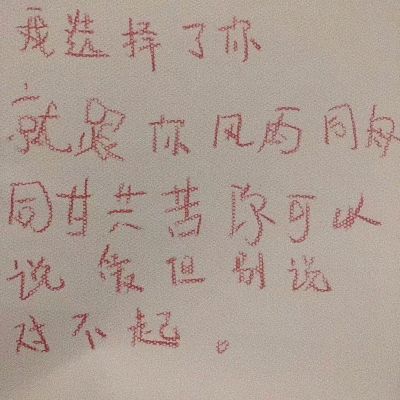 我选择了你
就跟你风雨同舟
同甘共苦你可以
说但别说
对不起。